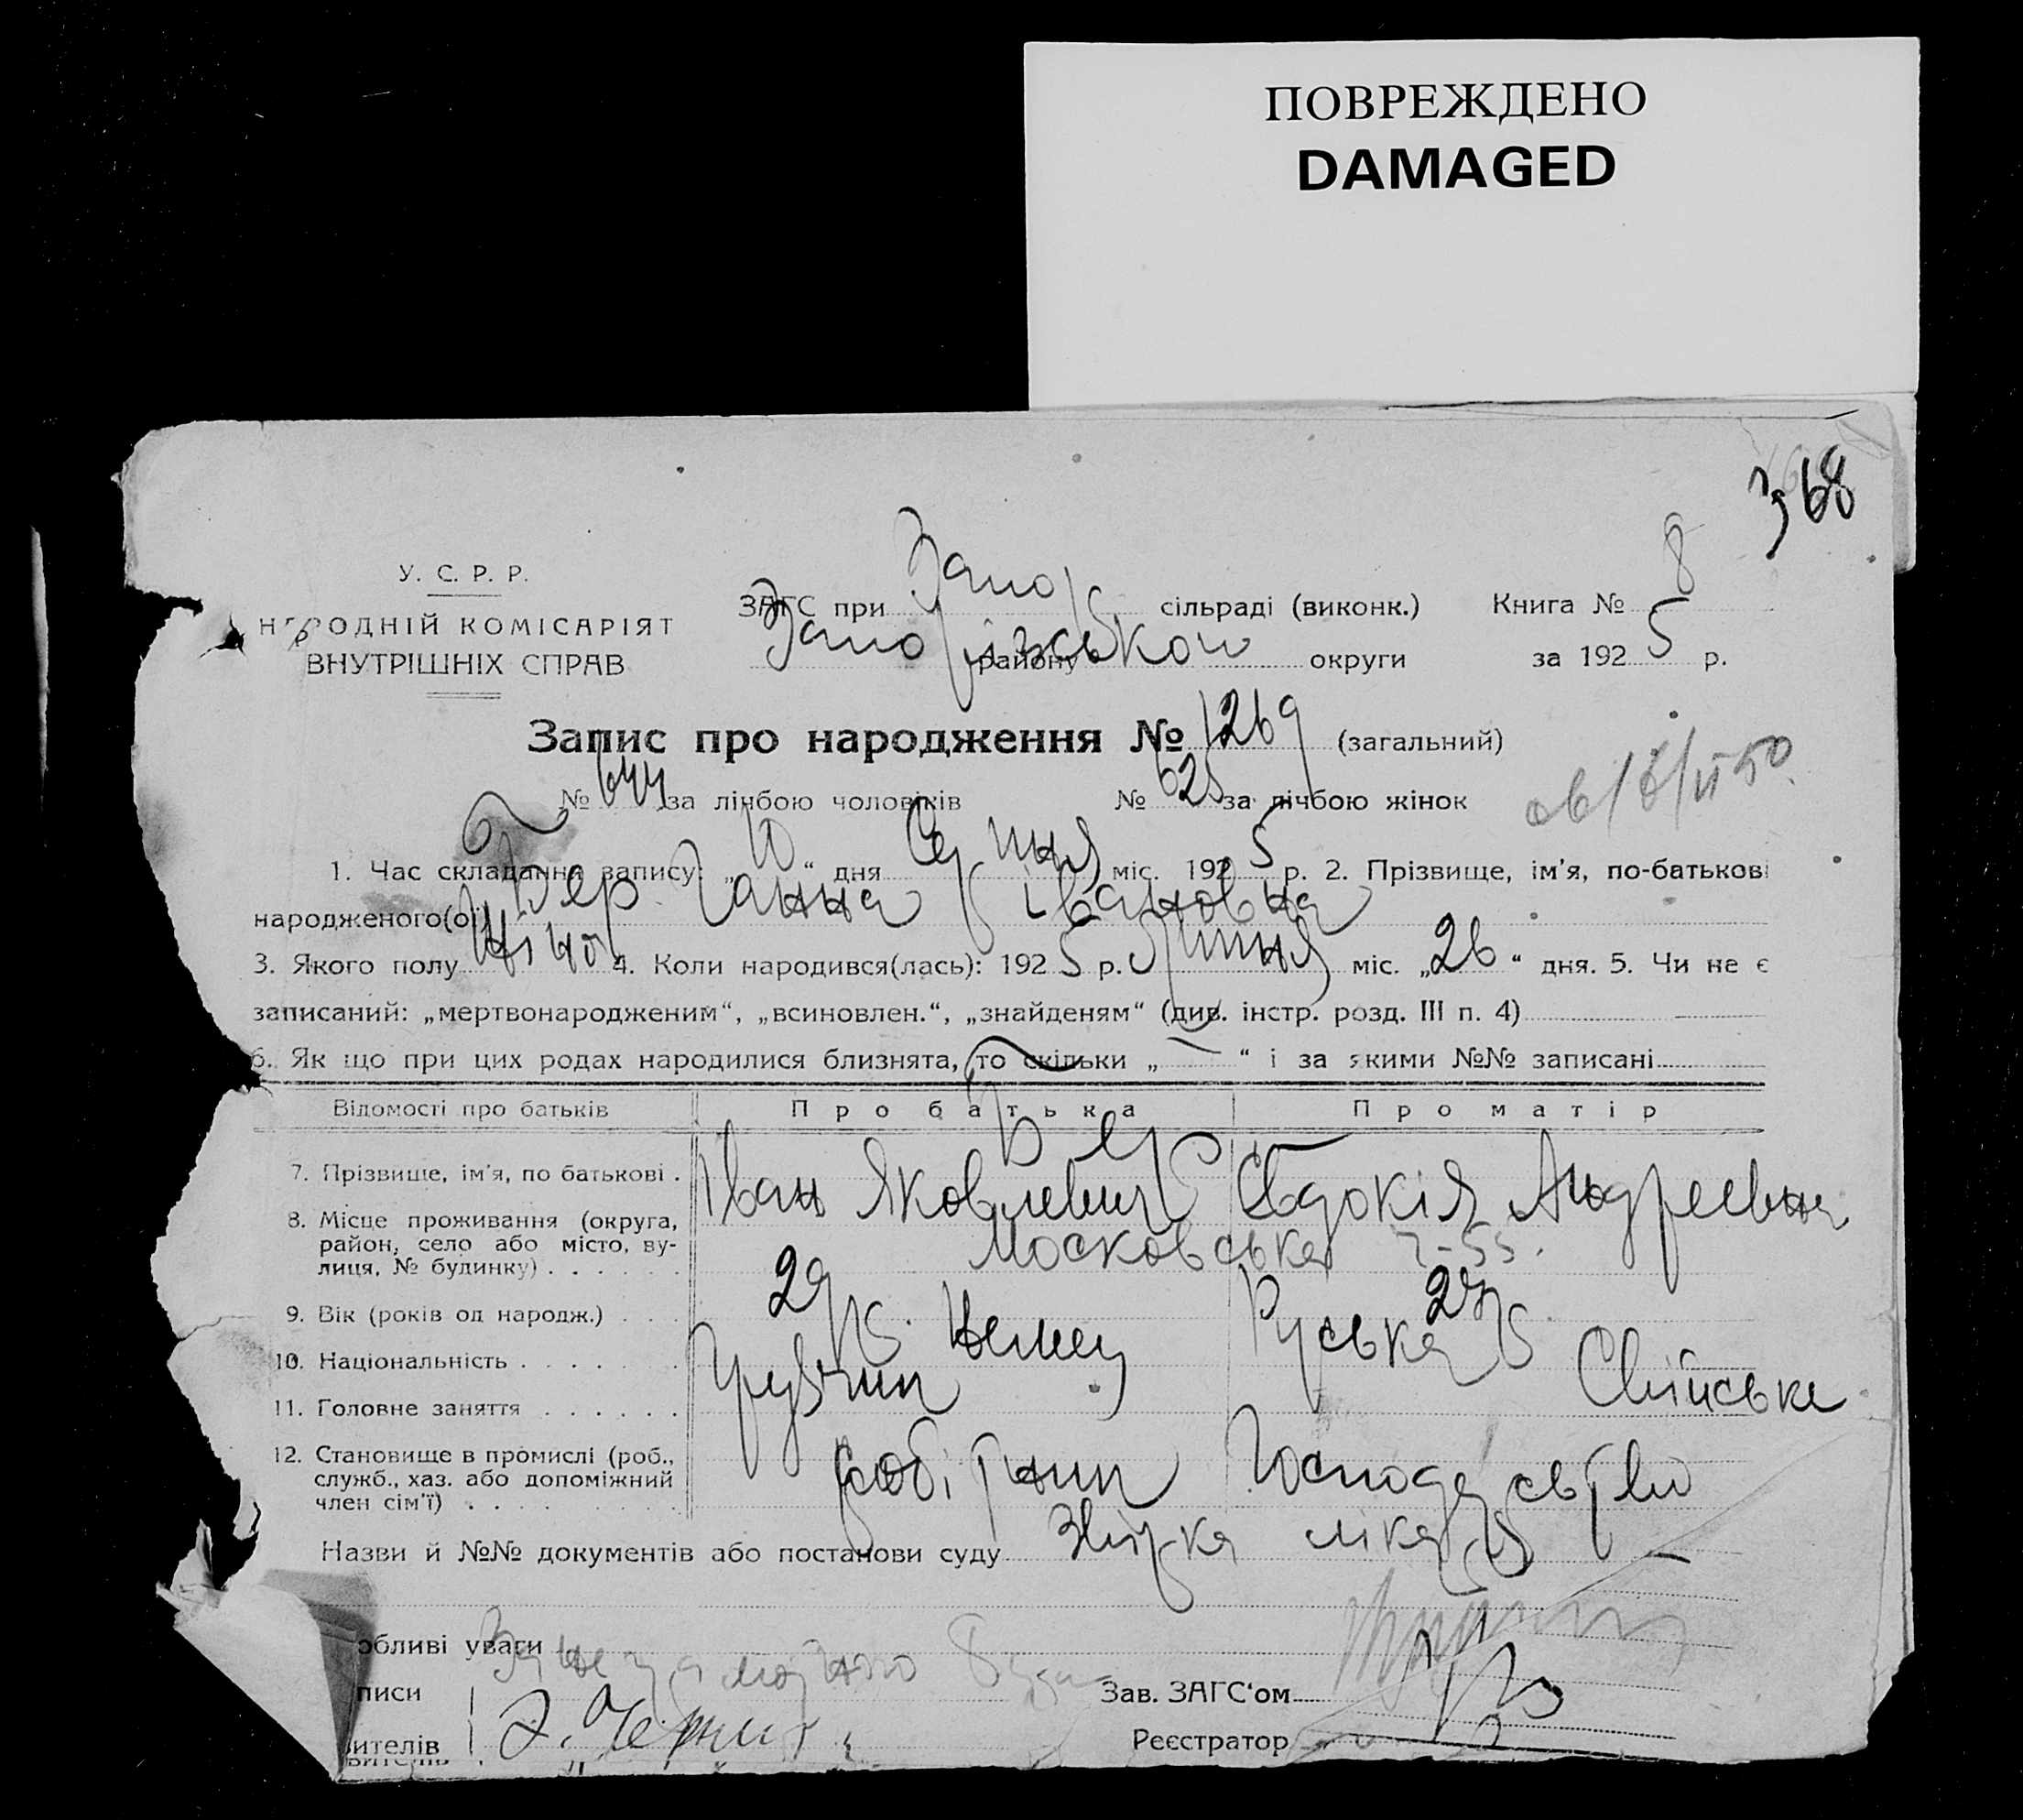 ПОВРЕЖДЕНО
DAMAGED
368
У. С. Р. Р.
НАРОДНІЙ КОМІСАРІЯТ
ВНУТРІШНІХ СПРАВ
ЗАГС при Запор сільраді (виконк.) Книга № 8
Запоріжської району округи за 1925 р.
Запис про народження № 1269 (загальний)
№ 644 за лічбою чоловіків № 625 за лічбою жінок
1. Час складання запису: „10“ дня Серпня міс. 1925 р. 2. Прізвище, ім'я, по-батькові
народженого(ої) Бер Ганна Івановна
3. Якого полу Жіно 4. Коли народився(лась): 1925 р. Липня міс. „26“ дня. 5. Чи не є
записаний: „мертвонародженим“, „всиновлен.“, „знайденям“ (див. інстр. розд. III п. 4)
6. Як що при цих родах народилися близнята, то скільки „ — “ і за якими №№ записані
Відомості про батьків Про батька Про матір
Бер
7. Прізвище, ім'я, по батькові . Іван Яковлевич Євдокія Андреевна
8. Місце проживання (округа,
район, село або місто, ву-
лиця, № будинку) . . . . . . Московська
9. Вік (років од народж.) . . . 29 р. 27 р.
10. Національність . . . . . . . Немец Руська
11. Головне заняття . . . . . . Грузчик Свійське
12. Становище в промислі (роб.,
служб., хаз. або допоміжний
член сім'ї) . . . . . . . . . робітник Господарство
Назви й №№ документів або постанови суду Звірка лікаря
обливі уваги
писи Зав. ЗАГС'ом
вителів Реєстратор